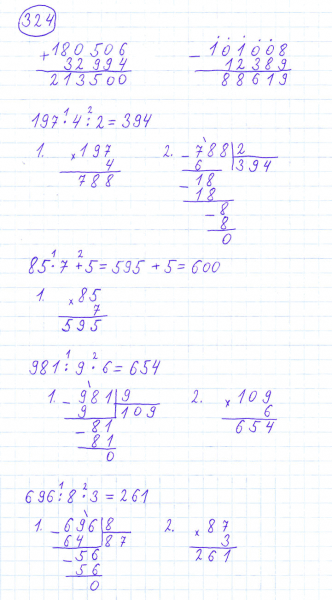 324
+ 180 506
32 994
213 500
- 101008
12389
88619
197 · 4 : 2 = 394
1. × 197
4
788
2. - 788 | 2
6 | 394
- 18
18
- 8
8
0
85 · 7 + 5 = 595 + 5 = 600
1. × 85
7
595
981 : 9 · 6 = 654
1. - 981 | 9
9 | 109
- 81
81
0
2. × 109
6
654
696 : 8 · 3 = 261
1. - 696 | 8
64 | 87
- 56
56
0
2. × 87
3
261